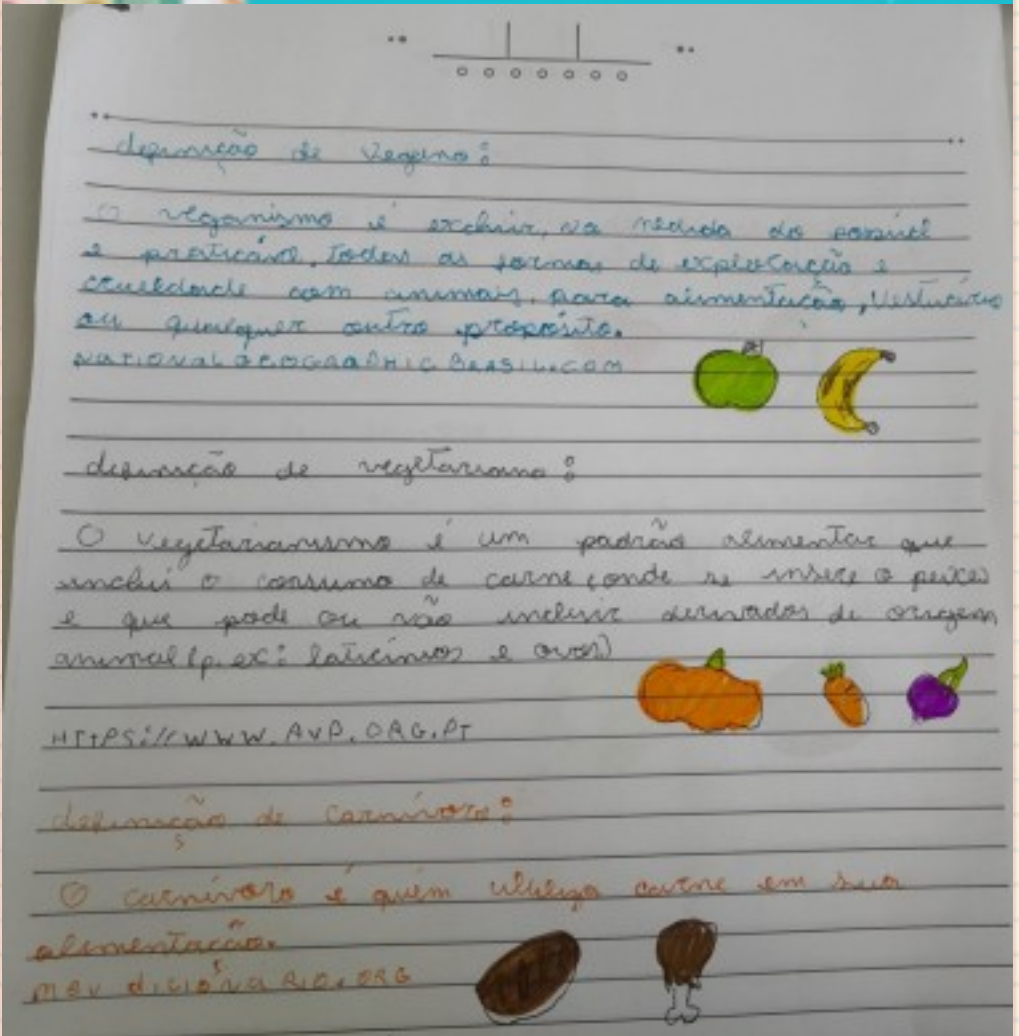 definição de Vegano:
O veganismo é excluir, na medida do possível
e praticável, todas as formas de exploração e
crueldade com animais, para aimentação, Vestuário
ou qualquer outro propósito.
NATIONALGEOGRAPHICBRASIL.COM
definição de vegetariano:
O vegetarianismo é um padrão alimentar que
inclui o consumo de carne (onde se insere o peixe)
e que pode ou não incluir derivados de origem
animal (p. ex: laticínios e ovos)
HTTPS://WWW.AVP.ORG.PT
definição de Carnívoro:
O carnívoro é quém utiliza carne em sua
alimentação.
MEU diCIONARIO.ORG